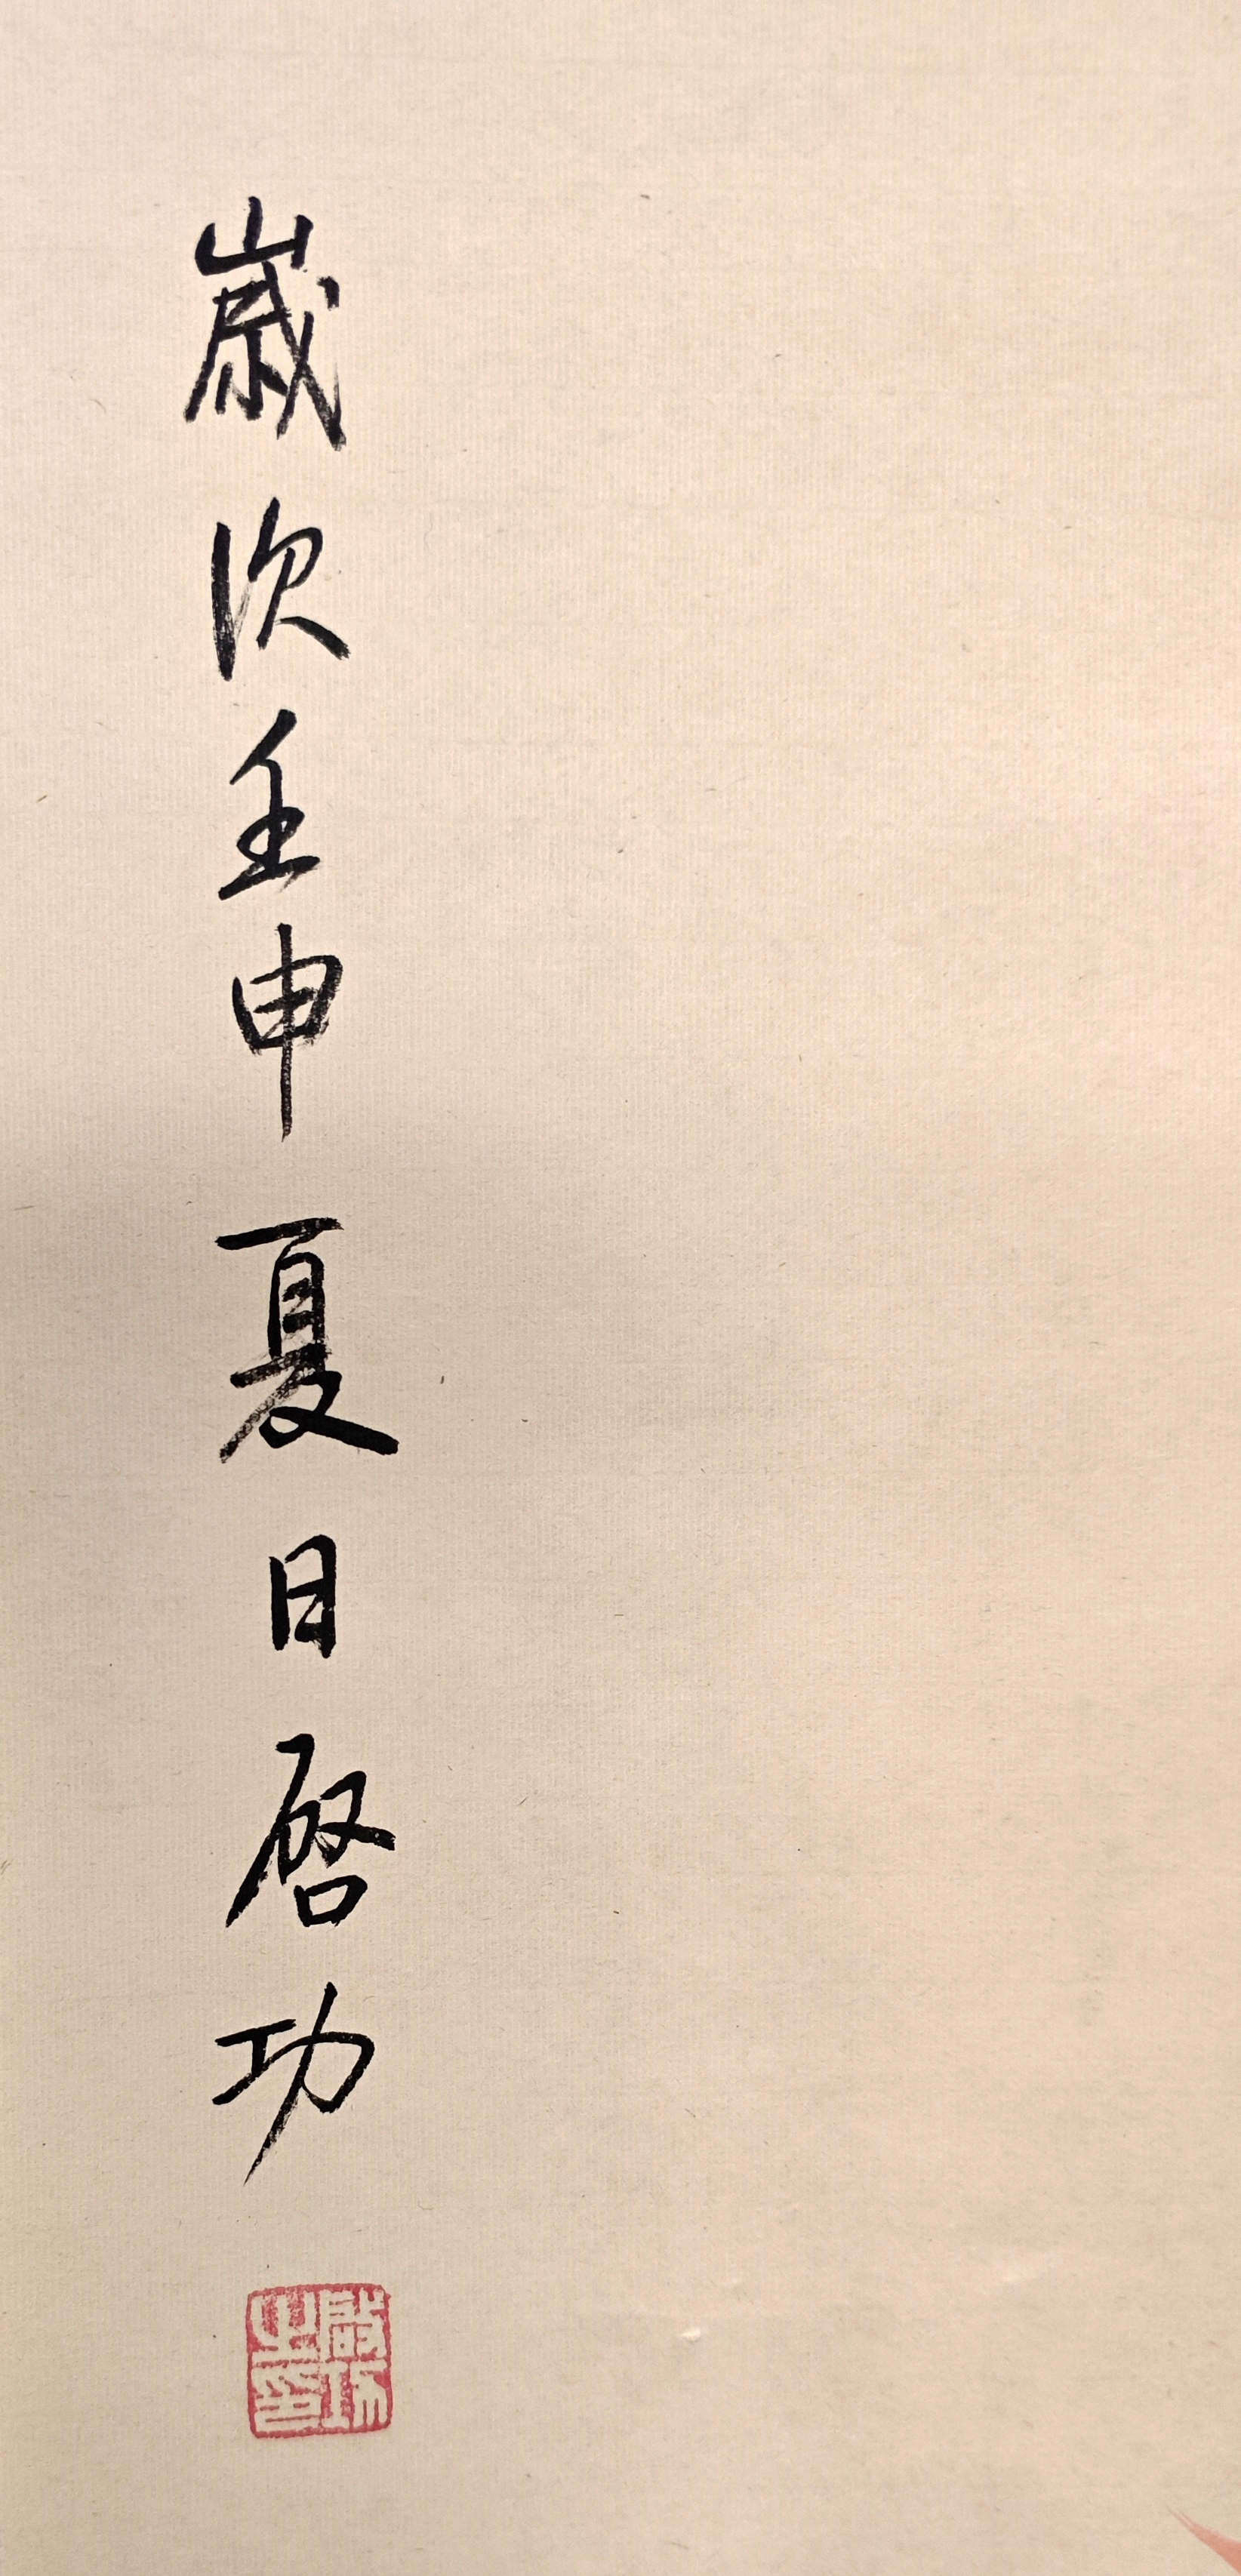 歲次壬申夏日启功
啟功之印